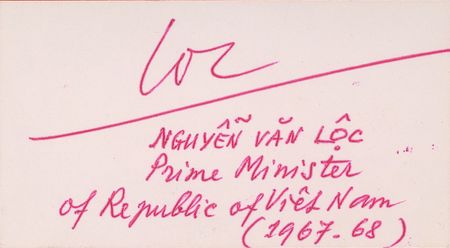 Loc
NGUYỄN VĂN LỘC
Prime Minister
of Republic of Việt Nam
(1967-68)